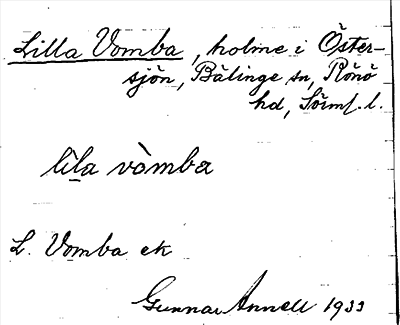 Lilla Vomba, holme i Öster-
sjön, Bälinge sn, Rönö
hd, Sörml. l.
lila vòmba
L. Vomba ek
Gunnar Annell 1933